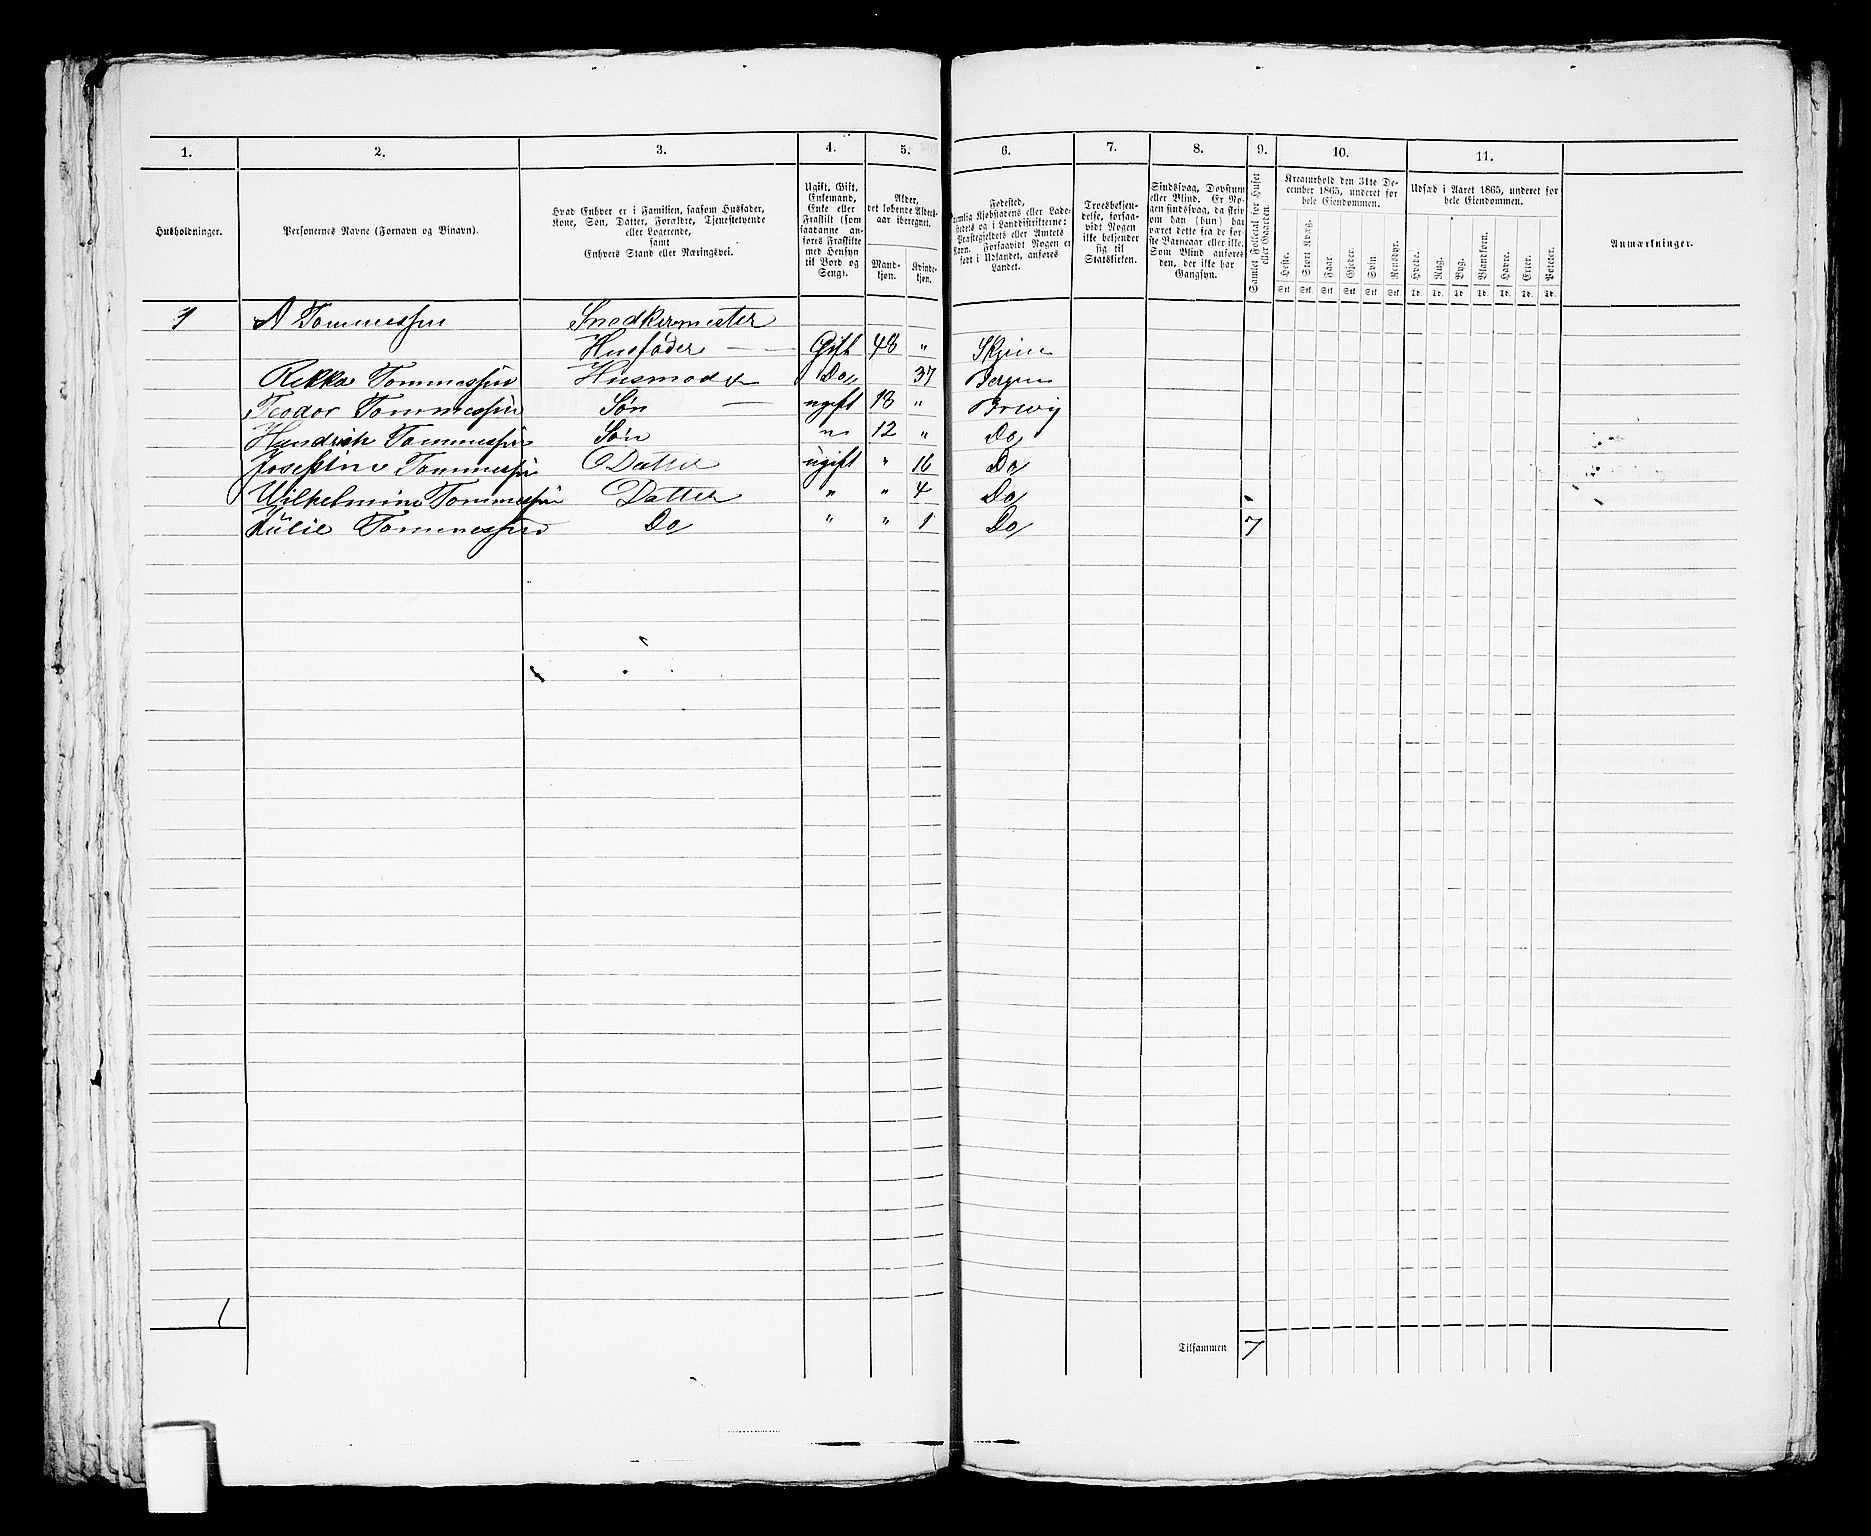 1. 2. 3. 4. 5. 6. 7. 8. 9. 10. 11.
Husholdninger.
Personernes Navne (Fornavn og Binavn).
Hvad Enhver er i Familien, saasom Husfader,
Kone, Søn, Datter, Forældre, Tjenestetyende
eller Logerende,
samt
Enhvers Stand eller Næringsvei.
Ugift, Gift,
Enkemand,
Enke eller
Fraskilt (som
saadanne an-
føres Fraskilte
med Hensyn
til Bord og
Seng).
Alder,
det løbende Alders-
aar iberegnet.
Mand-
kjøn.
Kvinde-
kjøn.
Fødested,
nemlig Kjøbstadens eller Lade-
stedets og i Landdistrikterne:
Præstegjeldets eller Amtets
Navn. Forsaavidt Nogen er
født i Udlandet, anføres
Landet.
Troesbekjen-
delse, forsaa-
vidt Nogen
ikke bekjender
sig til
Statskirken.
Sindssvag, Døvstum
eller Blind. Er No-
gen sindssvag, da skriv
om han (hun) har
været dette fra de før-
ste Barneaar eller ikke.
Som Blind anføres
den, der ikke har
Gangsyn.
Samlet Folketal for Huset
eller Gaarden.
Kreaturhold den 31te De-
cember 1865, underet for
hele Eiendommen.
Heste. Stort Kvæg. Faar. Gjeder. Svin. Rensdyr.
Stk. Stk. Stk. Stk. Stk. Stk.
Udsæd i Aaret 1865, underet for
hele Eiendommen.
Hvede. Rug. Byg. Blandkorn. Havre. Erter. Poteter.
Td. Td. Td. Td. Td. Td. Td.
Anmærkninger.
1 A Tommessen Snedkermester
Husfader — Gift 48 " Skjien
Rikka Tommessen Husmoder Do 37 Bergen
Teodor Tommessen Søn — ugift 18 " Brevig
Hendrich Tommessen Søn " 12 " Do
Josefine Tommessen Datter ugift " 16 Do
Wilhelmine Tommessen Datter " " 4 Do
Julie Tommessen Do " " 1 Do 7
1
Tilsammen 7